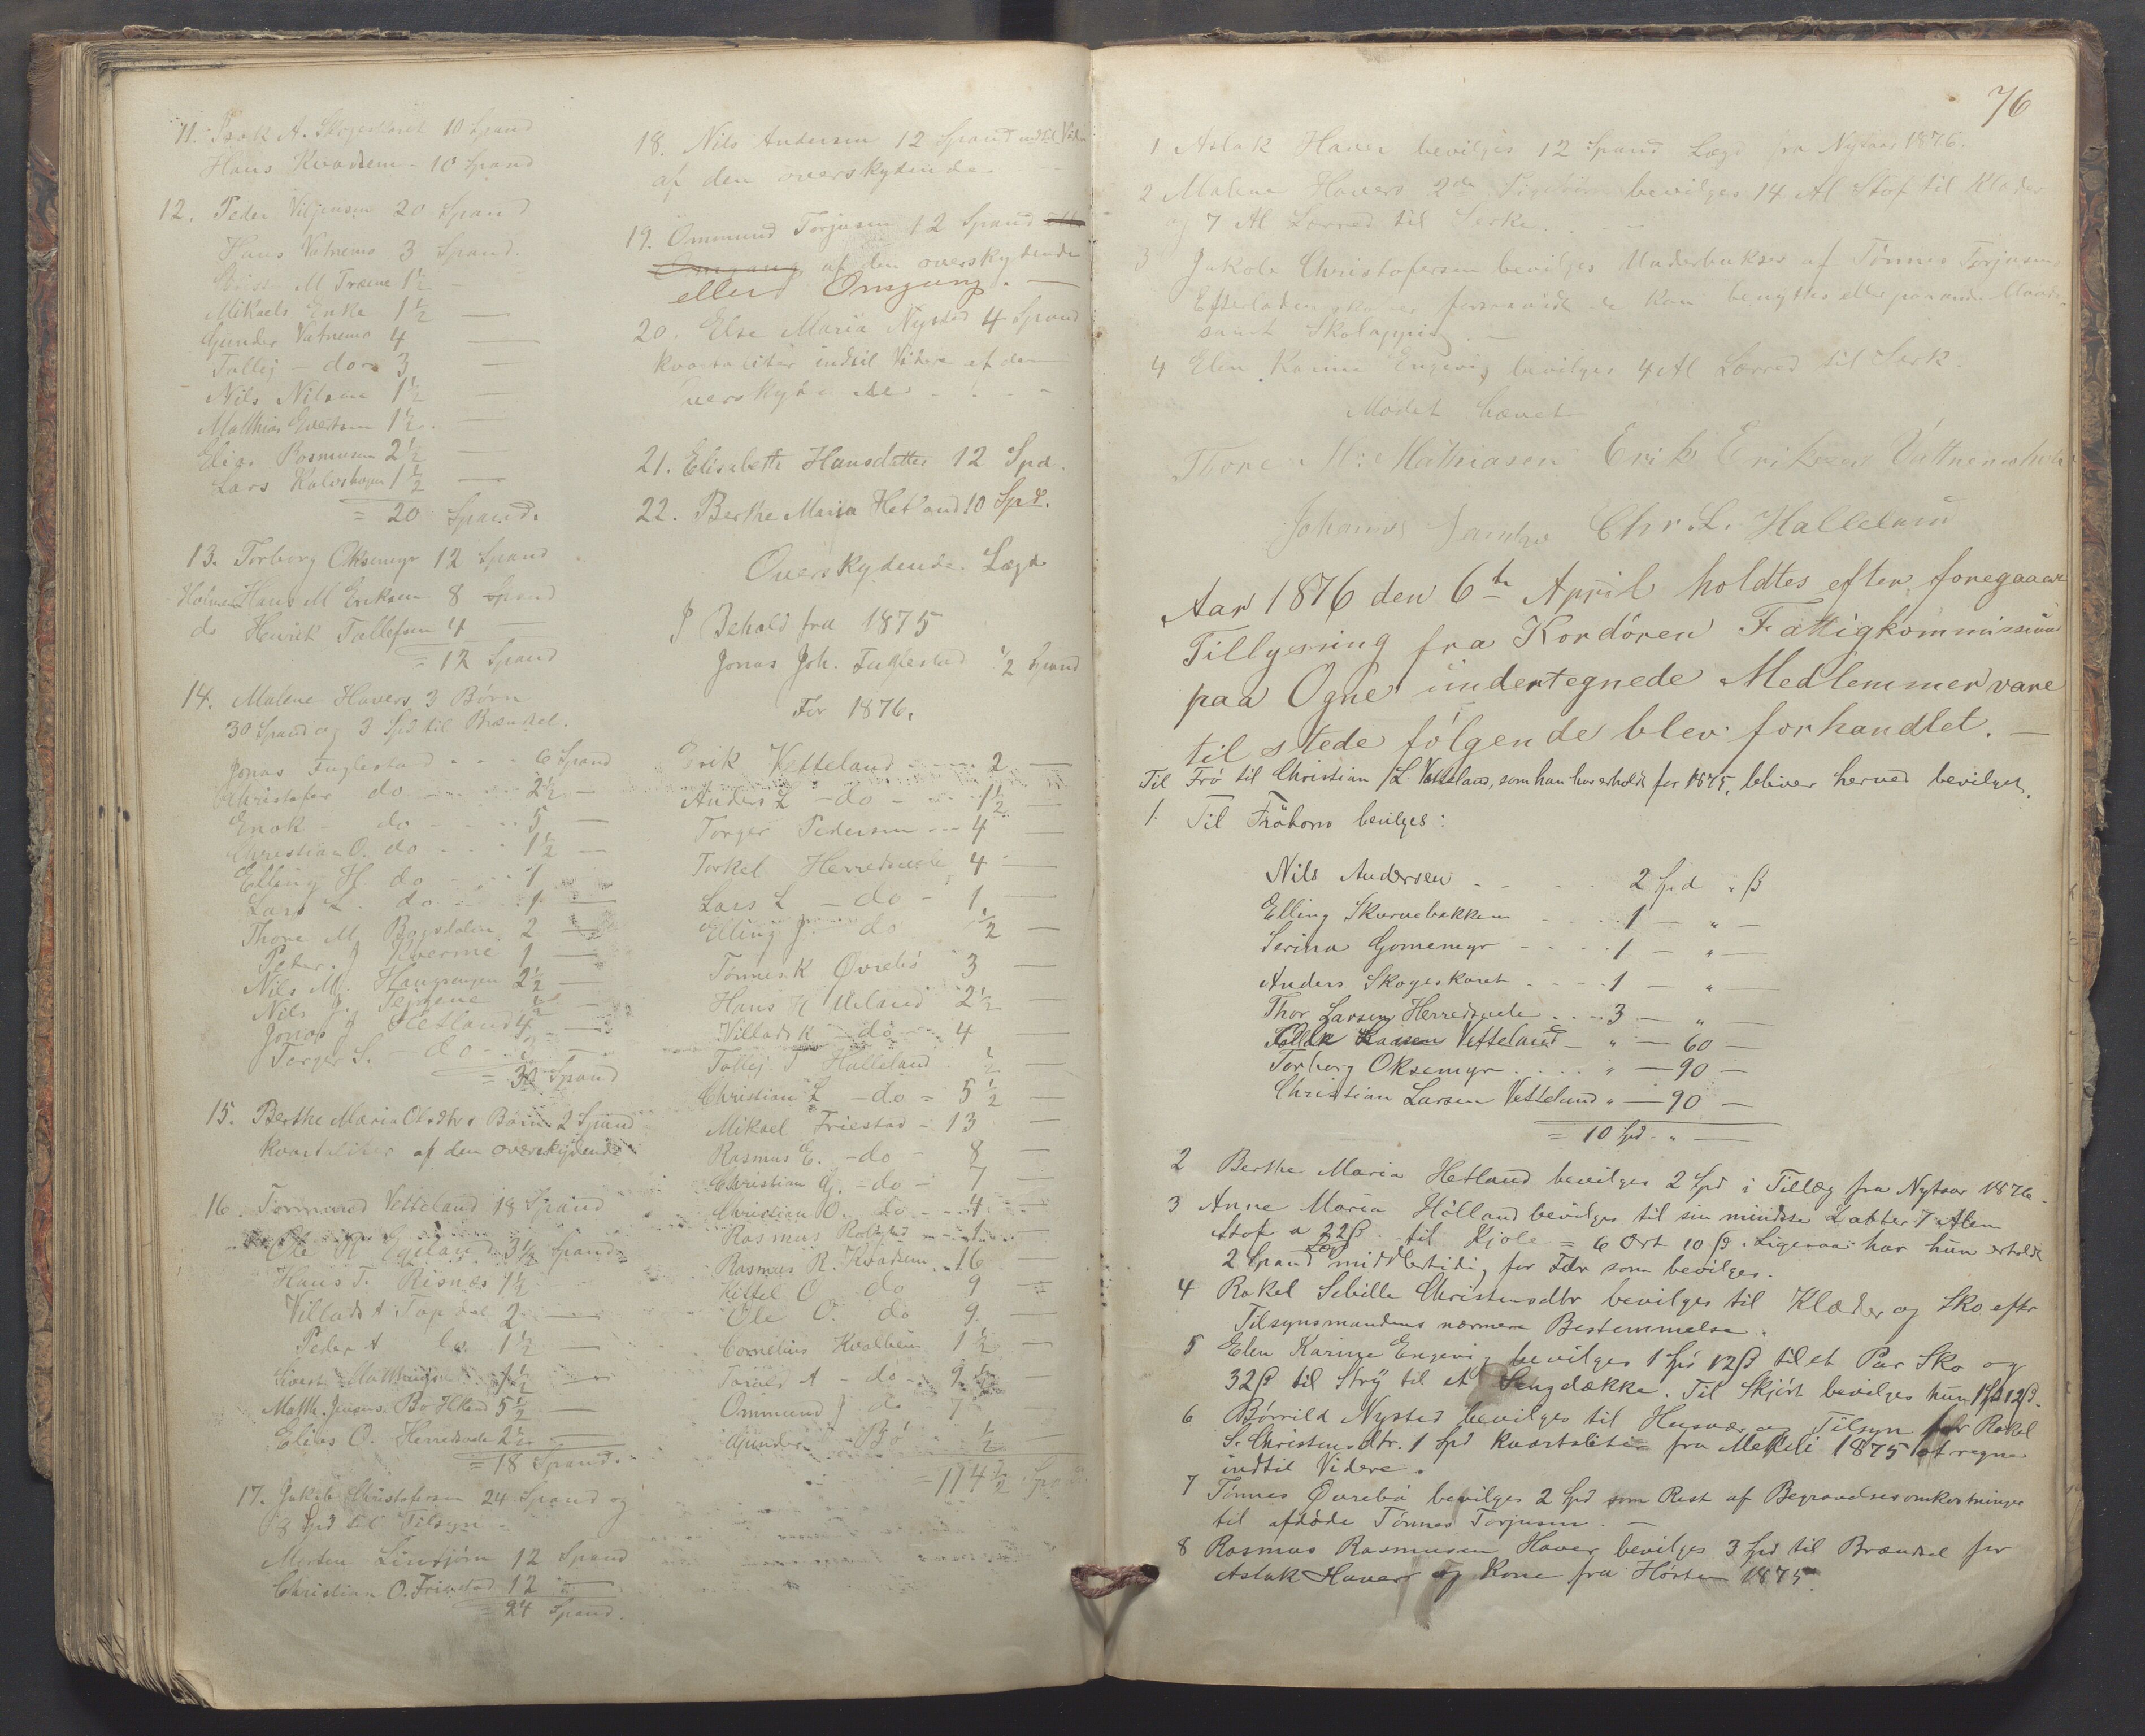 11. Isak A. Skogeskaret 10 Spand
Hans Kvadsem - 10 Spand
12. Peder Viljemsen 20 Spand
Hans Vatnemo 3 Spand.
M Træene 1½ —
Mikaels Enke 1½ —
Gunder Vatnemo 4 —
Tollej - do 3 —
Nils Nilsen 1½ —
Matthias Evertsen 1½. —
Elias Rasmusen 2½ —
Lars Kalvshagen 1½ —
= 20 Spand.
13. Torborg Oksemyr 12 Spand
Holmen Hans M Eriksen 8 Spand
do Henrik Tallefsen 4 —
= 12 Spand
14. Malene Havers 3 Børn
30 Spand og 3 Spd til Brændsel.
Jonas Fuglestad - - - 6 Spand
Christofer do - - - 2½ —
Enok - do - - - 5 —
Christian O. do - - - 1½ —
Elling H. do - - - 1
Lars L. do - - - 1 —
Thore M. Bogsdalen 2 —
Peter J Kverme 1 —
Nils M. Haugengen 2½ —
Nils J. ½ —
Jonas J Hetland 4 —
Torger S. - do -
= 30 Spand
15. Berthe Maria Olsdtrs Børn 2 Spand
kvartaliter af den overskydende
16. Tormund Vetteland 18 Spand
Ole R Egeland 3½ Spand
Hans T. Risnæs 1½
Villads A Tapdal 2 —
Peder A do 1½ —
Sivert Matthiasen 1½ —
Matth. Jensens Bo Hetland 5½ —
Elias O. Herredsvele 2½ —
= 18 Spand.
17. Jakob Christofersen 24 Spand og
8 Spd til Tilsyn
Morten Lintjørn 12 Spand
Christian O. Friestad 12 —
= 24 Spand.
18. Nils Andersen 12 Spand indtil Videre
af den overskydende
19. Ommund Torjusen 12 Spand
Omgang af den overskydende
eller Omgang. —
20. Else Maria Nysted 4 Spand
kvartaliter indtil Videre af den
Overskydende
21. Elisabeth Hansdatter 12 Spd.
22. Berthe Maria Hetland 10 Spd.
Overskydende Lægd
I Behold fra 1875
Jonas Joh. Fuglestad ½ Spand
For 1876.
Erik Vetteland - - - 2 —
Anders L - do - - - 1½ —
Torger Pedersen - - 4 —
Torkel Herredsvele 4 —
Lars L - do - 1 —
Elling J. do ½ —
Tønnes K Øvrebø 3 —
Hans H Ueland 2½ —
Villads K - do - 4 —
Tollej T Halleland ½ —
Christian L - do - 5½ —
Mikael Friestad - 13 —
Rasmus E. - do - 8 —
Christian G. - do - 7 —
Christian O. do - - 4 —
Rasmus - - 1 —
Rasmus R. Kvadsem - 16 —
Kittel O do 9 —
Ole O. do 9 —
Cornelius Kvalbein 1½ —
Torild A - do - 9½ —
Ommund J do - 7 —
Gunder Bø ½ —
= 114½ Spand
76
1 Aslak Haver bevilges 12 Spand Lægd fra Nytaar 1876.
2 Malene Havers 2de bevilges 14 Al Stof til Klæder
og 7 Al Lærred til Serke.
3 Jakob Christofersen bevilges Underbukser af Tønnes Torjusens
Efterladenskaber forsaavidt de kan benyttes eller paa anden Maade
samt Skolapping. —
4 Elen Karine Engevig bevilges 4 Al Lærred til Serk.
Mødet hævet
Thore M: Mathiasen Erik Eriksen Vattnemoholm
Johannes Chr. L. Halleland
Aar 1876 den 6te April holdtes efter foregaaen
Tillysning fra Kordören Fattigkommission
paa Ogne undertegnede Medlemmer vare
til stede følgende blev forhandlet. —
Til Frø til Christian L Vetteland, som han har erholdt for 1875, bliver herved bevilget.
1. Til Frökorn bevilges:
Nils Andersen - - - 2 Spd " ß
Elling Skurvebakken - - - 1 — " —
Serina Gomemyr - - - 1 — " —
Anders Skogeskaret - - - 1 — " —
Thor Larsen Herredsvele - - - 3 — " —
Vetteland - " — 60 —
Torborg Oksemyr - - - " — 90 —
Christian Larsen Vetteland " — 90 —
= 10 Spd - " —
2 Berthe Maria Hetland bevilges 2 Spd i Tillæg fra Nytaar 1876.
3 Anne Maria Hölland bevilges til sin mindste Datter 7 Alen
Stof a 22ß til Kjole = 6 Ort 10 ß. Ligesaa har hun erholdt
2 Spand Lægd middlertidig for Før som bevilges.
4 Rakel Sebille Christensdtr bevilges til Klæder og Sko efter
Tilsynsmandens nærmere Bestemmelse.
5 Elen Karine Engevig bevilges 1 Spd 12ß til et Par Sko og
32ß til Stry til et Sengdække. Til Skjört bevilges hun 1 Spd 12ß.
6 Börrild Nysted bevilges til Husvær og Tilsyn for Rakel
S. Christensdtr. 1 Spd kvartaliter fra Mekkeli 1875 at regne
indtil Videre.
7 Tönnes Øvrebø bevilges 2 Spd som Rest af Begravelsesomkostninger
til afdöde Tönnes Torjusen. —
8 Rasmus Rasmusen Haver bevilges 3 Spd til Brændsel for
Aslak Haver og Kone fra Hösten 1875.